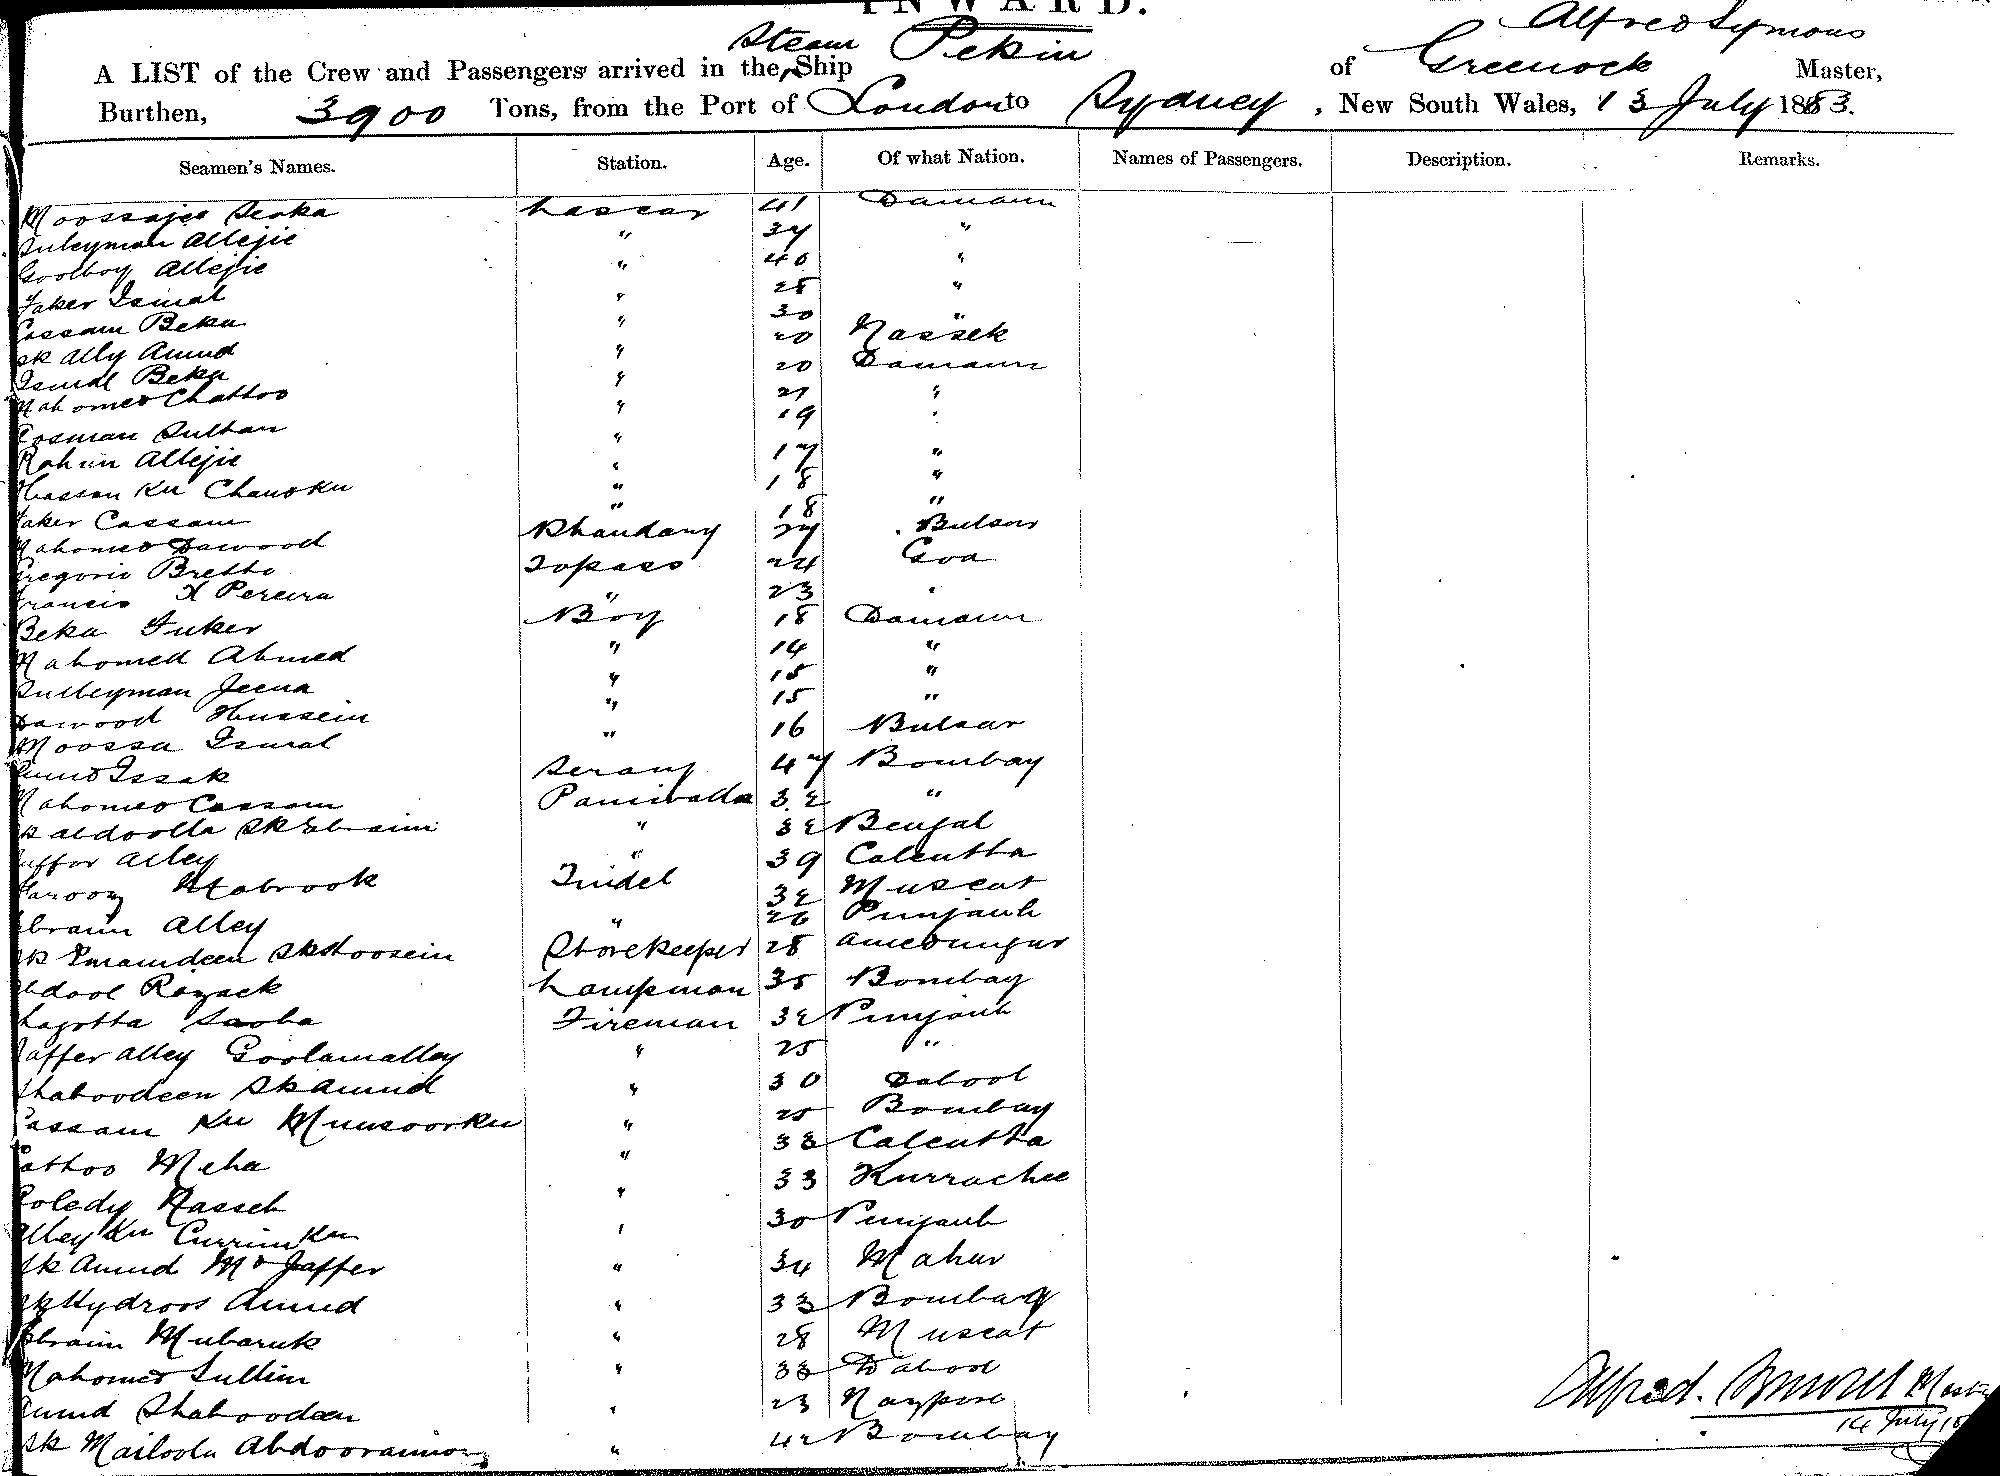 INWARD.
A LIST of the Crew and Passengers arrived in the Steam Ship Pekin of Greenock Alfred Symons Master,
Burthen, 3900 Tons, from the Port of London to Sydney, New South Wales, 13 July 1883.
Seamen's Names. Station. Age. Of what Nation. Names of Passengers. Description. Remarks.
Moossajee Seaka Lascar 41 Damaun
Suleyman Allejie " 34 "
Goolboy Allejie " 40 "
Faker Ismal " 28 "
Cassam Beka " 30 "
Sk Ally Amud " 20 Nassek
Ismal Beka " 20 Damaun
Mahomed Chattoo " 21 "
Cosman Sultan " 19 "
Rahim Allejie " 17 "
Hassan Ku Chandku " 18 "
Faker Cassam " 18 "
Mahomed Dawood Bhandary 27 Bulsar
Gregorio Bretto Topass 24 Goa
Francis X Pereira " 23 "
Beka Fuker Boy 18 Damaun
Mahomed Ahmed " 14 "
Sulleyman Jeena " 15 "
Dawood Hussein " 15 "
Moossa Ismal " 16 Bulsar
Amud Issak Serang 47 Bombay
Mahomed Cassam Paniwalla 32 "
Sk Abdoolla Sk Ebraim " 32 Bengal
Juffor Alley " 39 Calcutta
Farooz Mabrook Tindel 32 Muscat
Ebraim Alley " 26 Punjaub
Sk Emamdeen Sk Hoosein Storekeeper 28 Amednugur
Abdool Rozack Lampman 35 Bombay
Shagotta Saoba Fireman 32 Punjaub
Jaffer Alley Goolamalley " 25 "
Shaboodeen Sk Amud " 30 Dabool
Cassam Ku Munsoorku " 25 Bombay
Cathoo Meha " 33 Calcutta
Roledy Nasseb " 33 Kurrachee
Alley Ku Currimku " 30 Punjaub
Sk Amud Md Jaffer " 34 Mahar
Sk Hydroos Amud " 33 Bombay
Ebraim Mubaruk " 28 Muscat
Mahomed Sullim " 33 Dabool
Amud Shaboodeen " 23 Nagpore
Sk Mailoola Abdooraimon " 42 Bombay
Alfred Symons Master
14 July 18